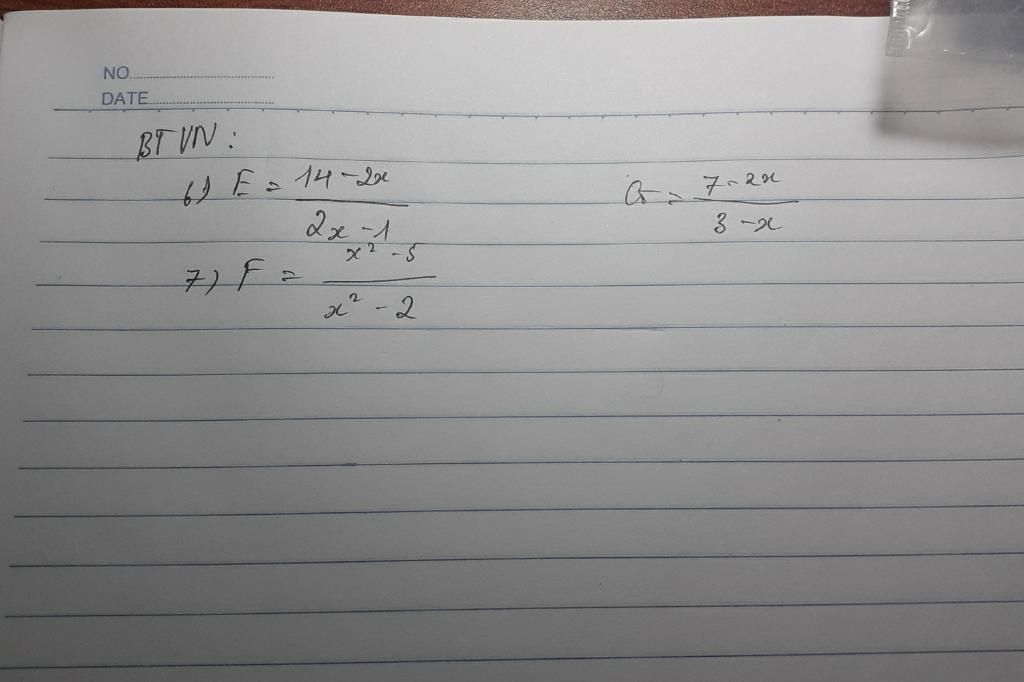 NO
DATE
BTVN:
6) E = (14 - 2x)/(2x - 1)
G = (7 - 2x)/(3 - x)
7) F = (x² - 5)/(x² - 2)